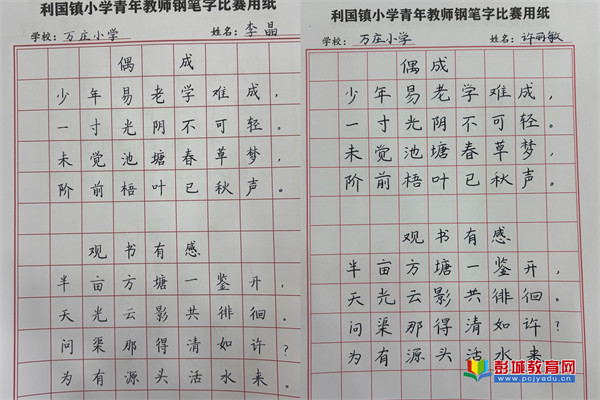 利国镇小学青年教师钢笔字比赛用纸
学校：万庄小学 姓名：李晶
偶成
少年易老学难成，
一寸光阴不可轻。
未觉池塘春草梦，
阶前梧叶已秋声。
观书有感
半亩方塘一鉴开，
天光云影共徘徊。
问渠那得清如许？
为有源头活水来。
利国镇小学青年教师钢笔字比赛用纸
学校：万庄小学 姓名：许丽敏
偶成
少年易老学难成，
一寸光阴不可轻。
未觉池塘春草梦，
阶前梧叶已秋声。
观书有感
半亩方塘一鉴开，
天光云影共徘徊。
问渠那得清如许？
为有源头活水来
彭城教育网
www.pcjyedu.cn